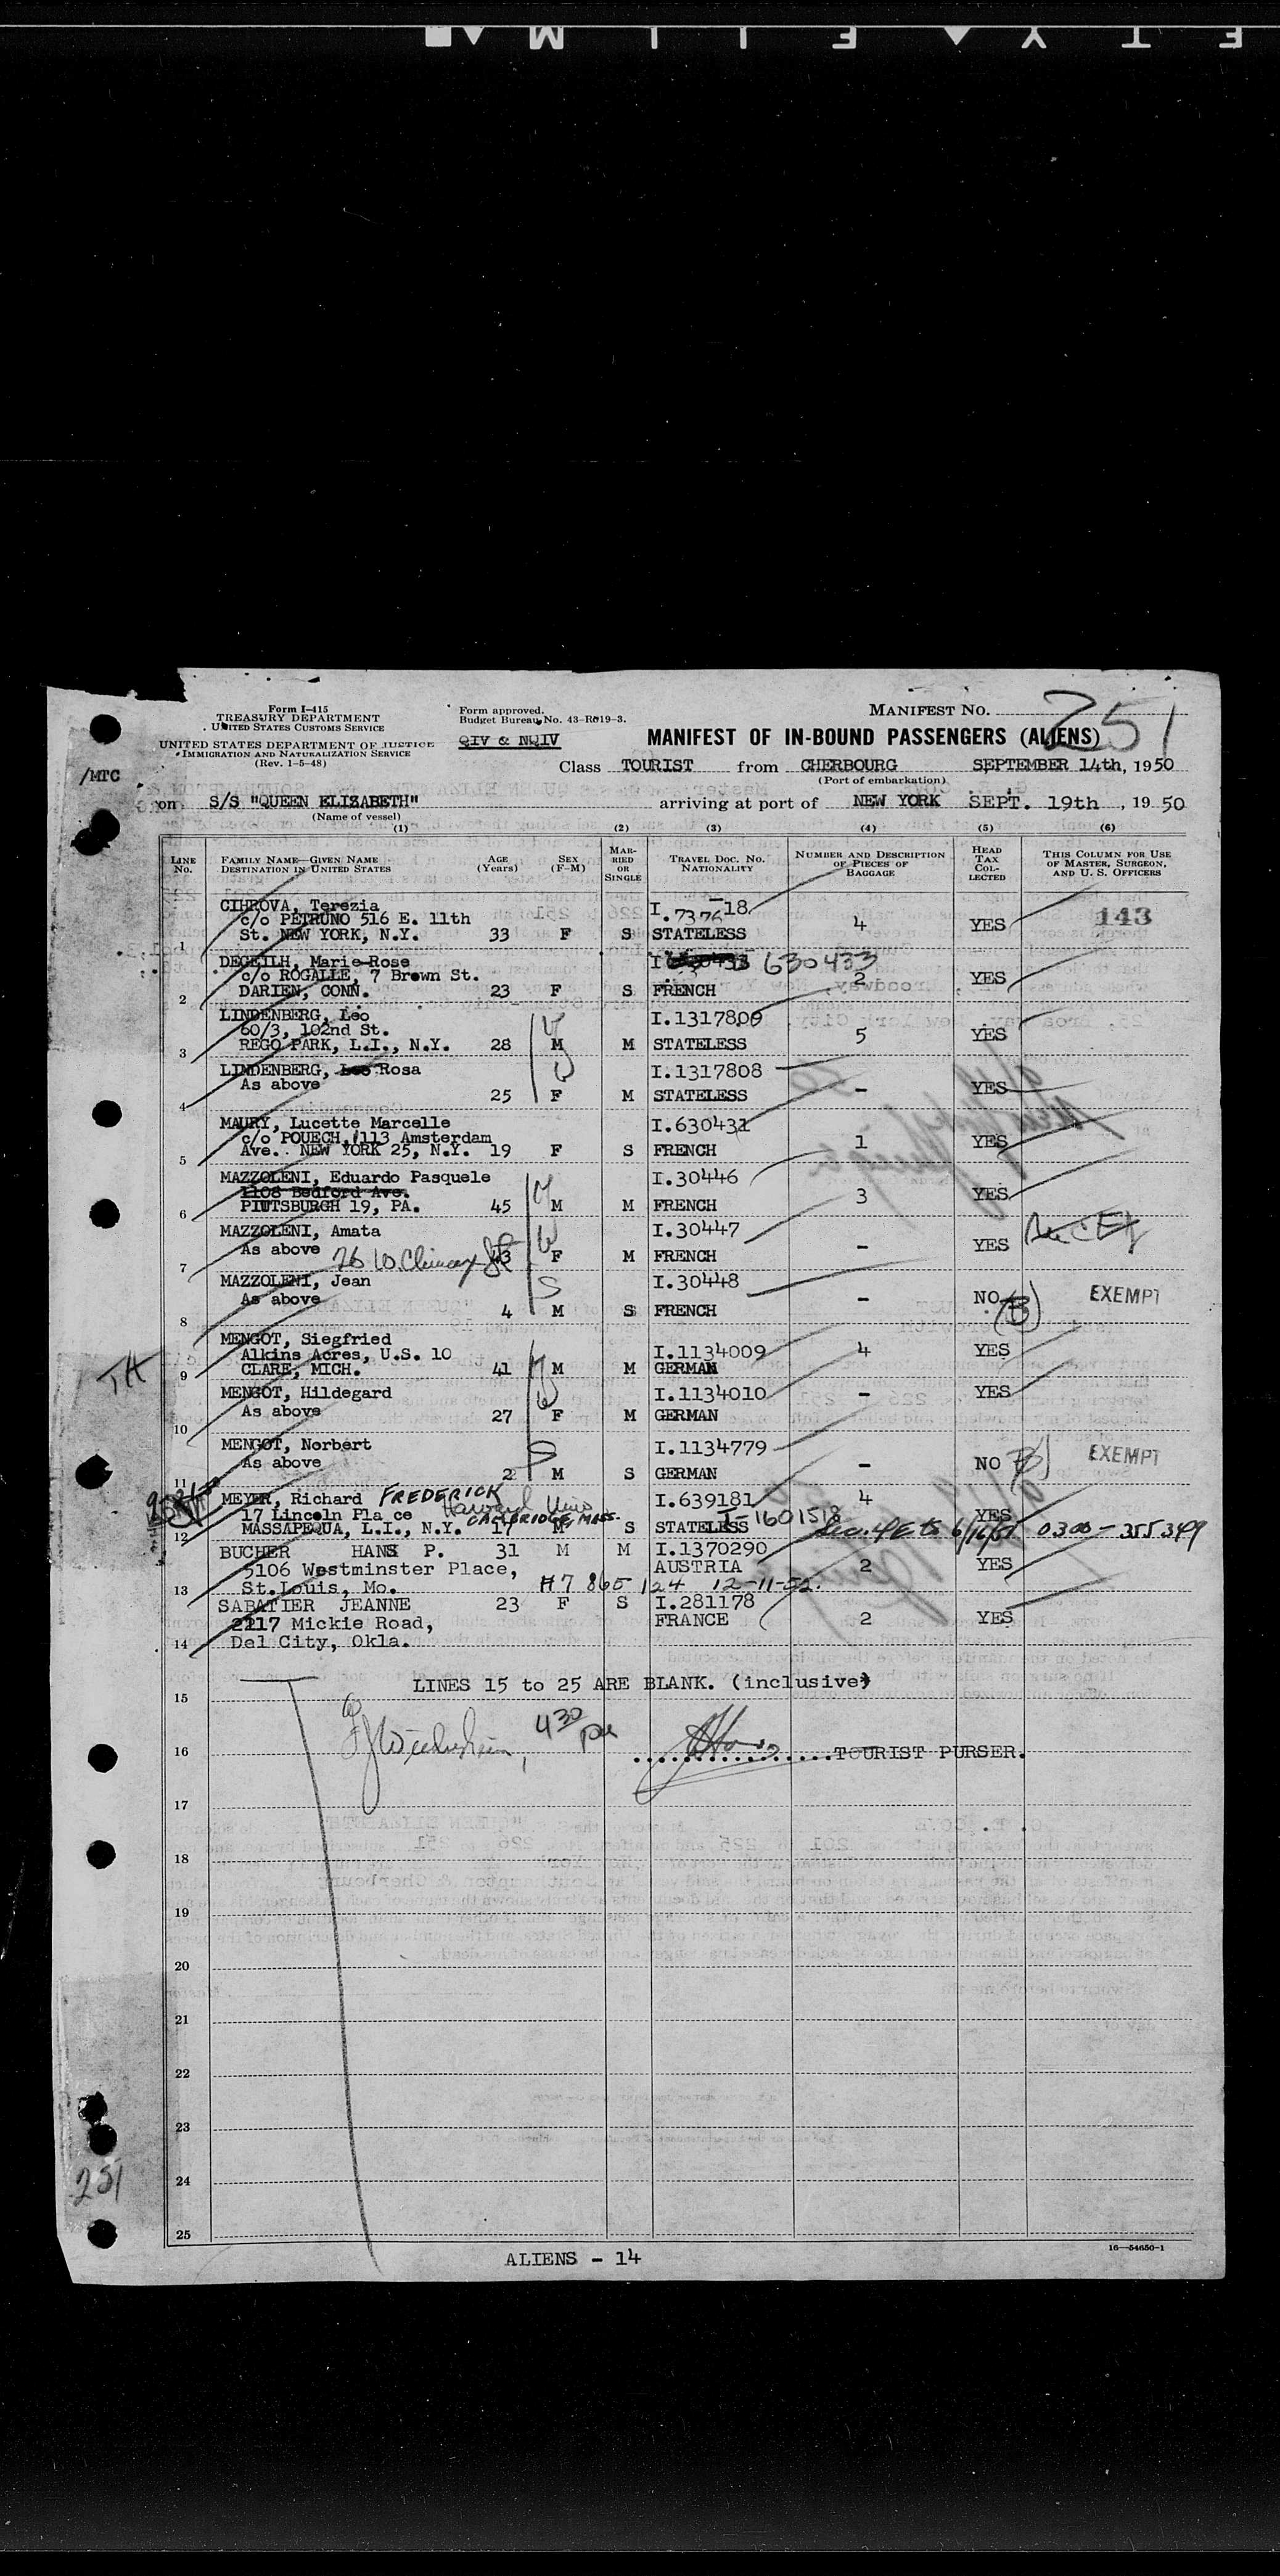 Form I-415
TREASURY DEPARTMENT
UNITED STATES CUSTOMS SERVICE
UNITED STATES DEPARTMENT OF JUSTICE
IMMIGRATION AND NATURALIZATION SERVICE
(Rev. 1-5-48)
Form approved.
Budget Bureau No. 43-R019-3.
QIV & NQIV
MANIFEST NO. 251
MANIFEST OF IN-BOUND PASSENGERS (ALIENS)
/MTC
Class TOURIST from CHERBOURG SEPTEMBER 14th, 1950
(Port of embarkation)
on S/S "QUEEN ELIZABETH" arriving at port of NEW YORK SEPT. 19th , 19 50
(Name of vessel)
(1) (2) (3) (4) (5) (6)
LINE NO.
FAMILY NAME—GIVEN NAME
DESTINATION IN UNITED STATES
AGE (Years)
SEX (F-M)
MARRIED OR SINGLE
TRAVEL DOC. NO. NATIONALITY
NUMBER AND DESCRIPTION OF PIECES OF BAGGAGE
HEAD TAX COLLECTED
THIS COLUMN FOR USE OF MASTER, SURGEON, AND U. S. OFFICERS
CIHROVA, Terezia I. 7376-18
c/o PETRUNO 516 E. 11th 4 YES 143
1 St. NEW YORK, N.Y. 33 F S STATELESS
DEGEILH, Marie-Rose I. 630433
c/o ROGALLE, 7 Brown St. 2 YES
2 DARIEN, CONN. 23 F S FRENCH
LINDENBERG, Leo I.1317809
60/3, 102nd St. 5 YES
3 REGO PARK, L.I., N.Y. 28 M M STATELESS
LINDENBERG, Leo Rosa I.1317808
As above - YES
4 25 F M STATELESS
MAURY, Lucette Marcelle I.630431
c/o POUECH, 113 Amsterdam 1 YES
5 Ave. NEW YORK 25, N.Y. 19 F S FRENCH
MAZZOLENI, Eduardo Pasquele I.30446
1108 Bedford Ave. 3 YES
6 PITTSBURGH 19, PA. 45 M M FRENCH
MAZZOLENI, Amata I.30447
As above - YES
7 43 F M FRENCH
MAZZOLENI, Jean I.30448
As above - NO (B) EXEMPT
8 4 M S FRENCH
MENGOT, Siegfried
Alkins Acres, U.S. 10 I.1134009 4 YES
9 CLARE, MICH. 41 M M GERMAN
TH
MENGOT, Hildegard I.1134010 - YES
As above 27 F M GERMAN
10
MENGOT, Norbert I.1134779
As above - NO B) EXEMPT
11 2 M S GERMAN
MEYER, Richard FREDERICK I.639181 4
17 Lincoln Pla ce Harvard Univ. I-1601518 YES
12 MASSAPEQUA, L.I., N.Y. CAMBRIDGE, MASS. 17 M S STATELESS 0300-355349
BUCHER HANS P. 31 M M I.1370290
5106 Westminster Place, AUSTRIA 2 YES
13 St.Louis, Mo. #7 865 124 12-11-52.
SABATIER JEANNE 23 F S I.281178
2217 Mickie Road, FRANCE 2 YES
14 Del City, Okla.
LINES 15 to 25 ARE BLANK. (inclusive)
15
4 30 pm
16 TOURIST PURSER.
17
18
19
20
21
22
23
24
251
25
ALIENS - 14
16—54650-1